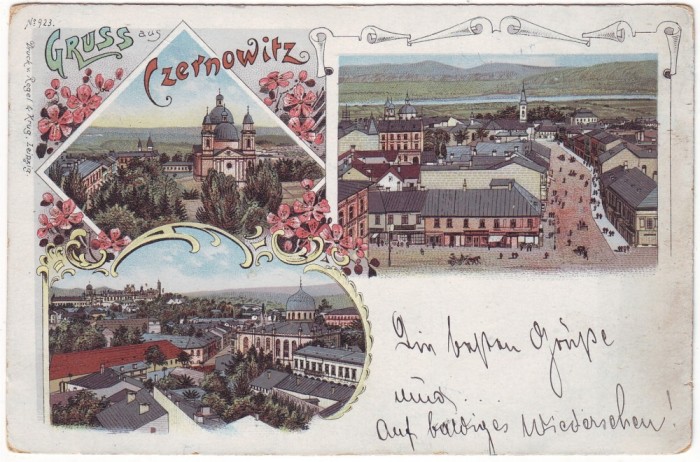 No 923.
GRUSS aus
Czernowitz
Druck v. Regel & Krug, Leipzig
Die besten Grüße
und...
auf baldiges Wiedersehen!